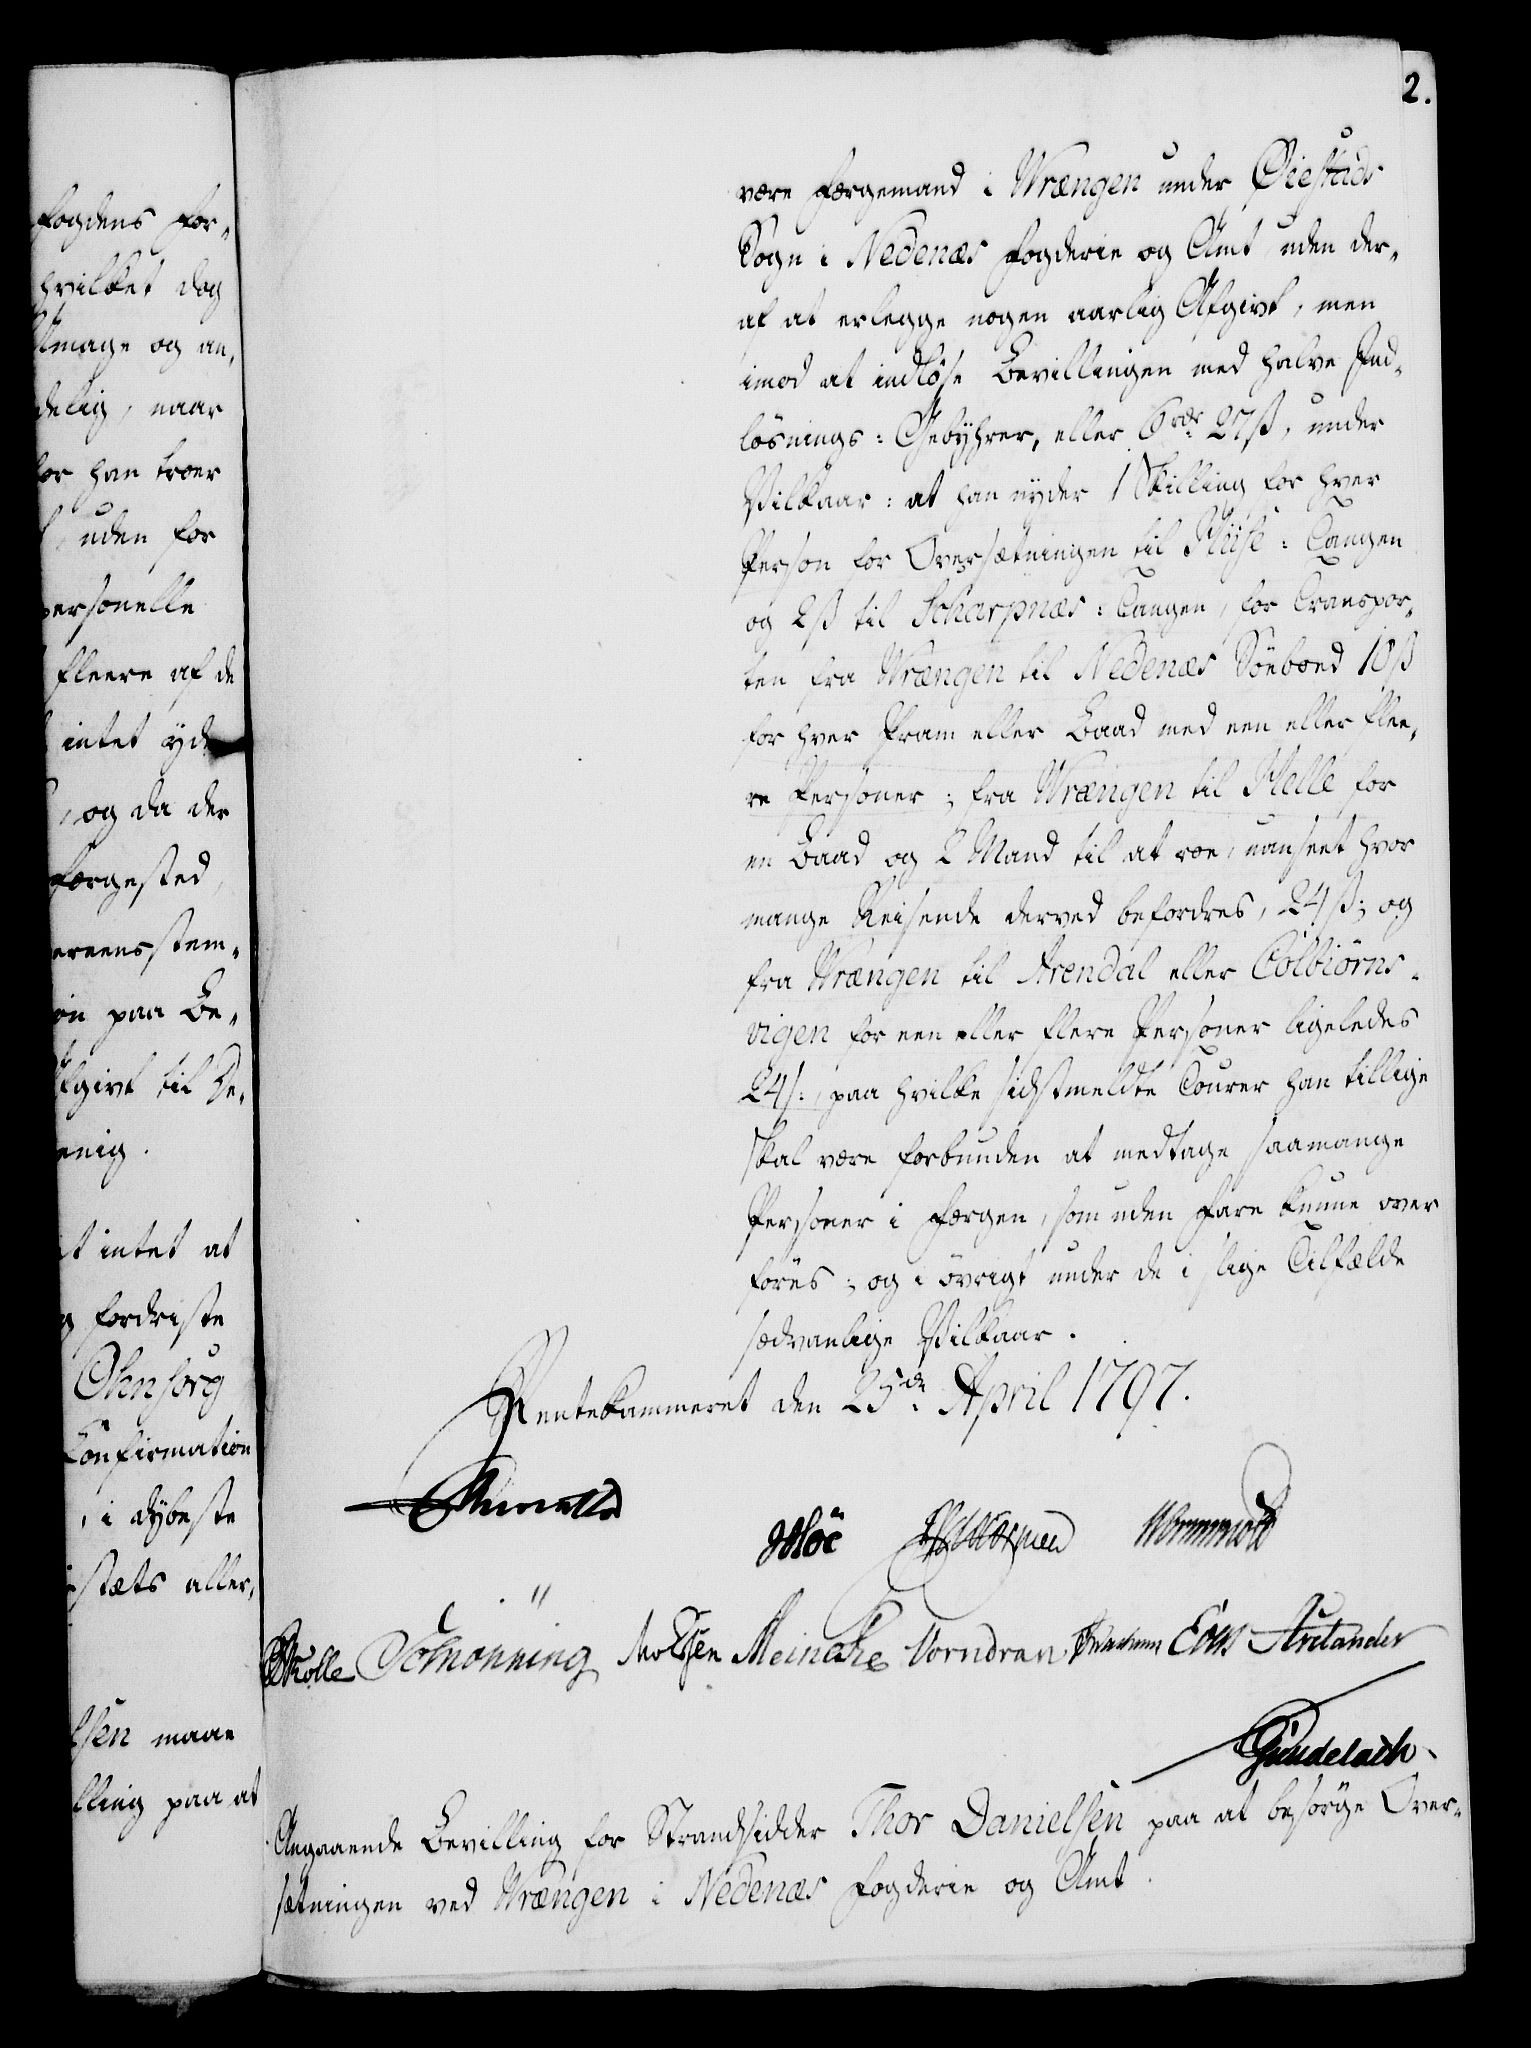 2.
fogdens for-
hvilket dog
mage og an,
delig, naar
for han troer
uden for
personelle
fleere af de
intet yde
, og da der
færgested,
ereensstem-
on paa Be-
Afgivt til De-
enig.
t intet at
g fordriste
Ohnsorg
Confirmation
, i dybeste
stæts aller,
lsen maae
lling paa at
være Færgemand i Wrængen under Øiestads
Sogn i Nedenæs Fogderie og Amt uden der-
af at erlegge nogen aarlig Afgivt, men
imod at indløse Bevillingen med halve Ind-
løsnings: Gebyhrer, eller 6 rdr 27 ß, under
Vilkaar: at han nyder 1 Skilling for hver
Person for Oversætningen til : Tangen
og 2 ß til Scharpnæs: Tangen, for Transpor-
ten fra Wrængen til Nedenæs Søeboed 10 ß
for hver Pram eller Baad med een eller flee-
re Personer; fra Wrængen til Helle for
en Baad og 2 Mand til at roe, uanseet hvor
mange Reisende derved befordres, 24 ß; og
fra Wrængen til Arendal eller Colbiørns-
vigen for een eller flere Personer ligeledes
24 ß:, paa hvilke sidstmeldte Tourer han tillige
skal være forbunden at medtage saamange
Personer i Færgen, som uden Fare kunne over
føres; og i øvrigt under de i slige Tilfælde
sædvanlige Vilkaar.
Rentekammeret den 25de April 1797.
Høe Wormskiold
Schønning Meincke Vorndran Aulander
Gundelach.
Angaaende Bevilling for Strandsidder Thor Danielsen paa at besørge Over-
sætningen ved Wrængen i Nedenæs Fogderie og Amt.